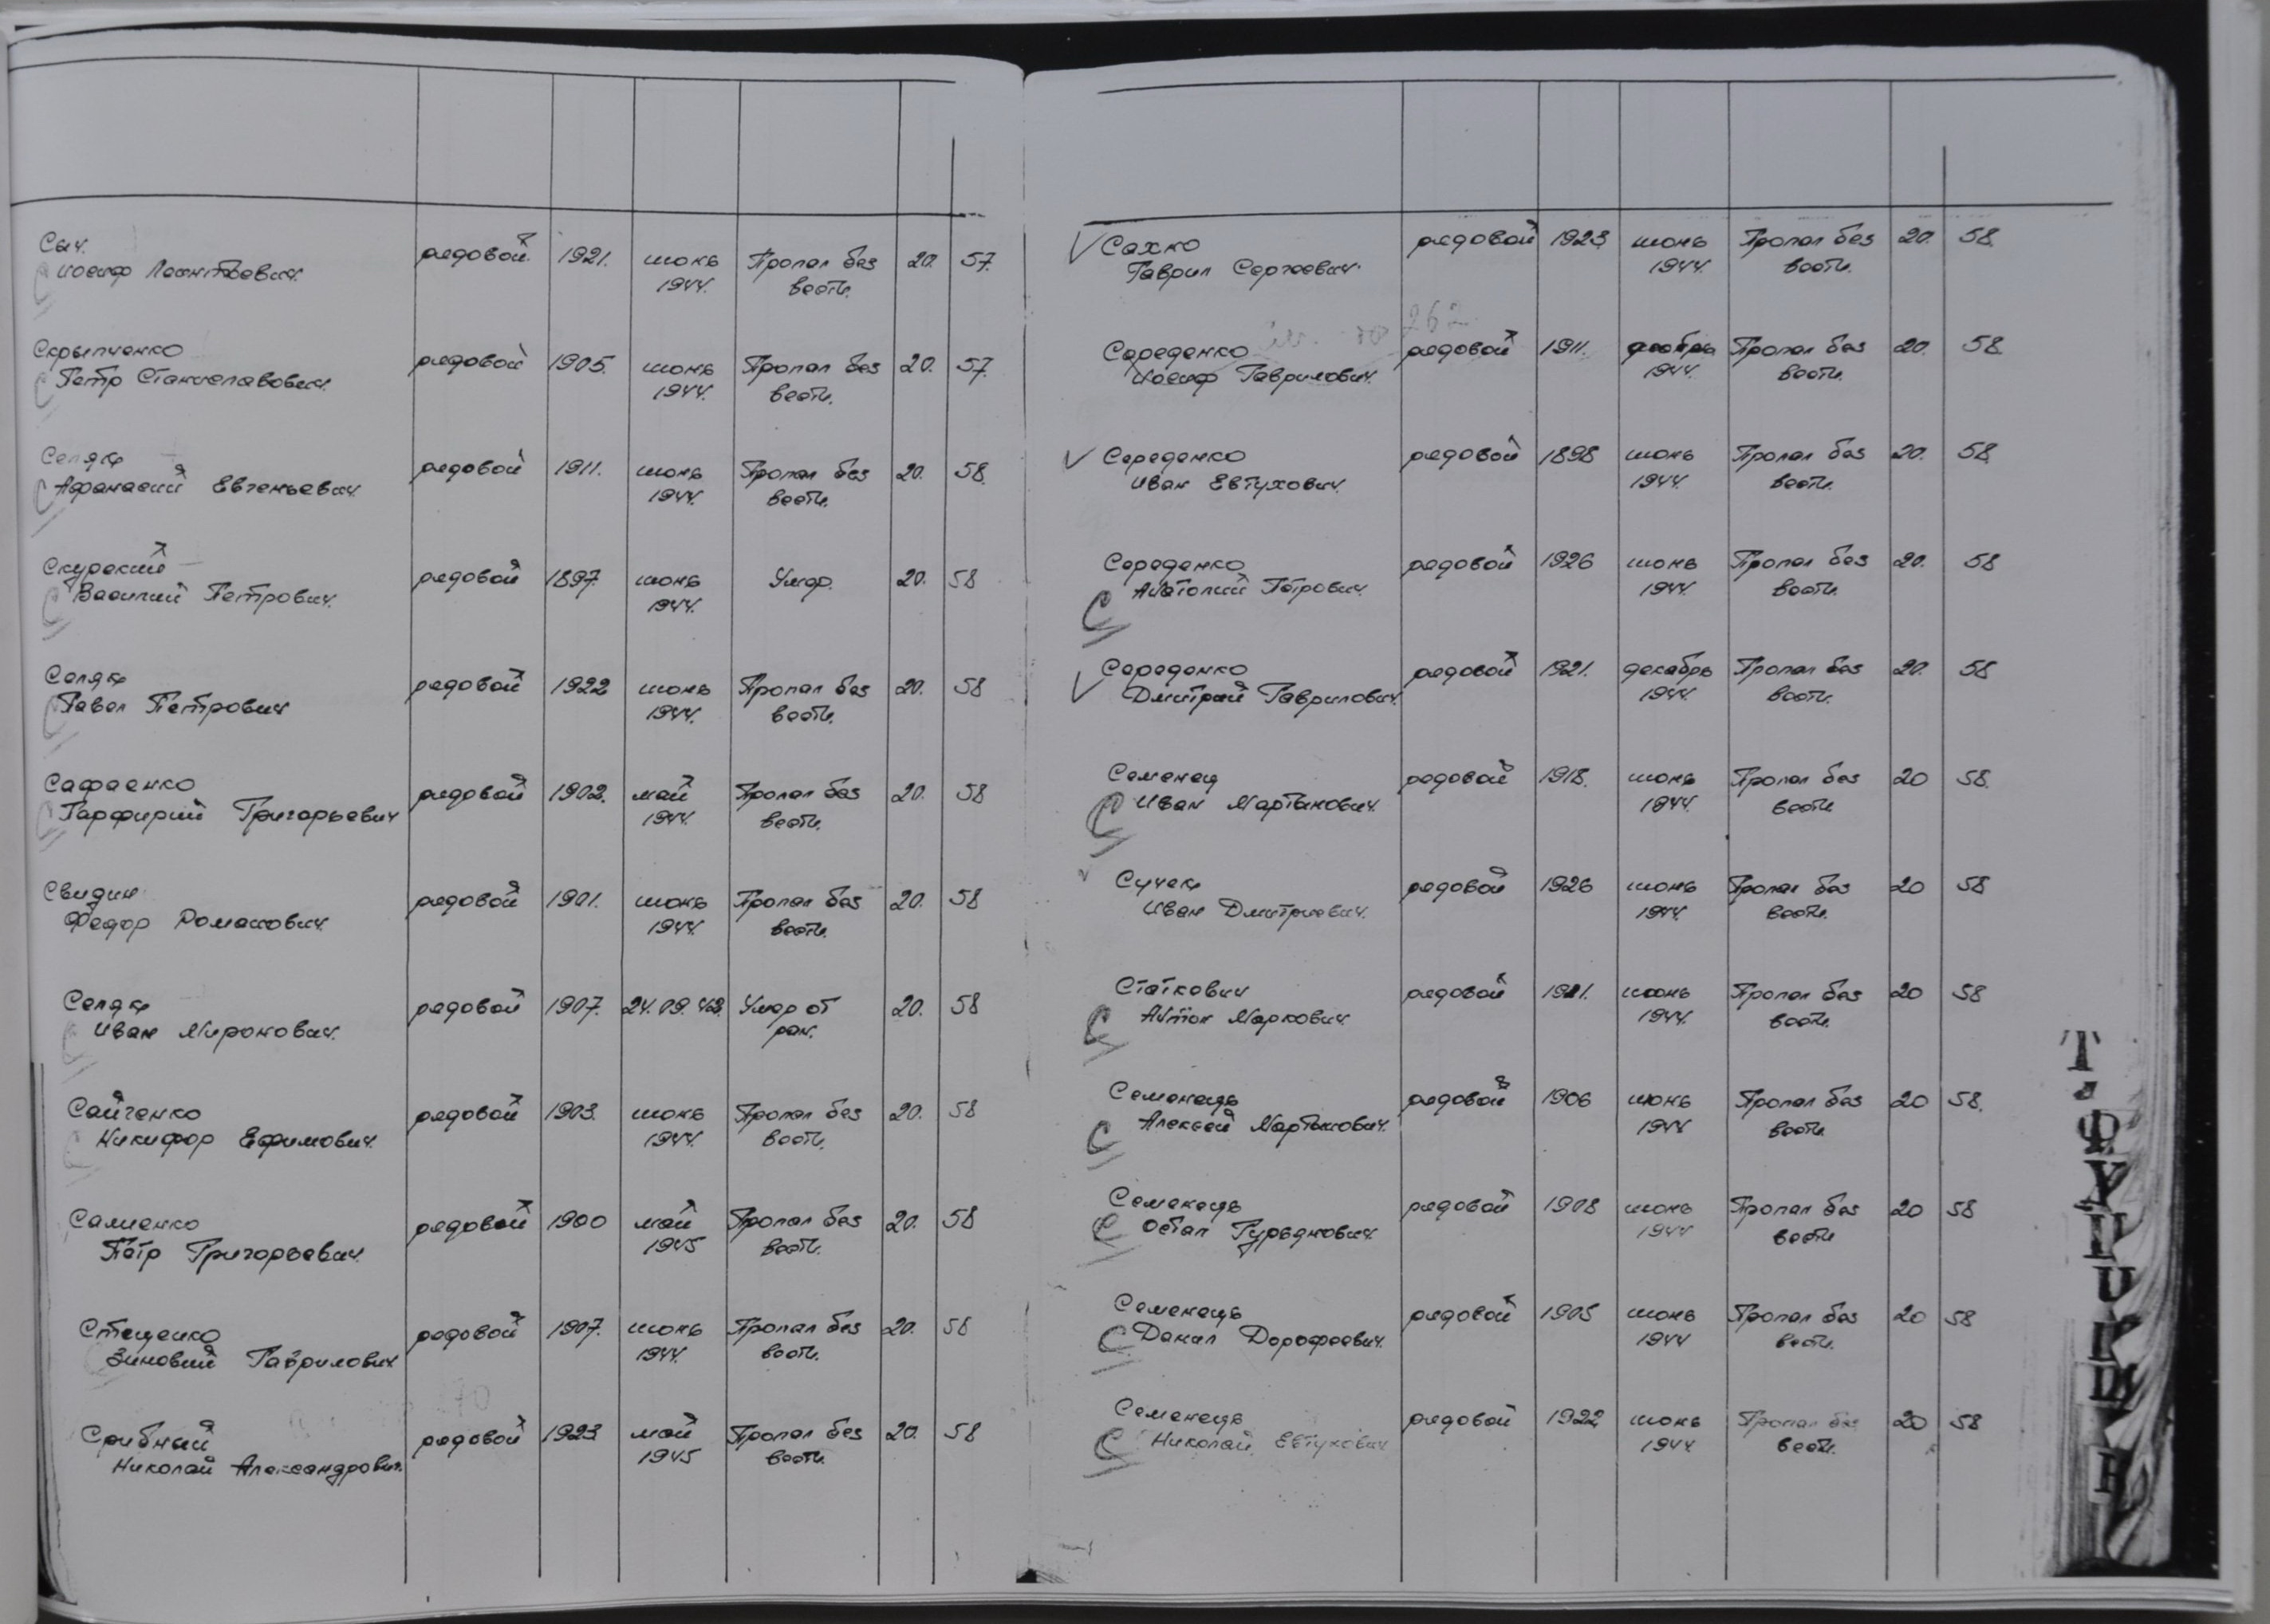 Сыч рядовой 1921. июнь Пропал без 20. 57.
Иосиф Леонтьевич. 1944. вести.
Скрыпченко рядовой 1905. июнь Пропал без 20. 57.
Петр Станиславович. 1944. вести.
Селях рядовой 1911. июнь Пропал без 20. 58.
Афанасий Евгеньевич. 1944. вести.
Скурский рядовой 1897. июнь Умер. 20. 58
Василий Петрович. 1944.
Селях рядовой 1922 июнь Пропал без 20. 58
Павел Петрович 1944. вести.
рядовой 1902. май Пропал без 20. 58
Парфирий Григорьевич 1944. вести.
Свидин рядовой 1901. июнь Пропал без 20. 58
Федор Романович. 1944. вести.
Селях рядовой 1907. 24.09.43. Умер от 20. 58
Иван Миронович. ран.
Сайченко рядовой 1903. июнь Пропал без 20. 58
Никифор Ефимович. 1944. вести.
рядовой 1900 май Пропал без 20. 58
Пётр Григорьевич. 1945 вести.
Стеценко рядовой 1907. июнь Пропал без 20. 58
Зиновий Гаврилович 1944. вести.
Срибный рядовой 1923 май Пропал без 20. 58
Николай Александрович. 1945 вести.
Сахно рядовой 1923 июнь Пропал без 20. 58.
Гаврил Сергеевич. 1944. вести.
262
Середенко рядовой 1911. Пропал без 20. 58.
Иосиф Гаврилович. 1944. вести.
Середенко рядовой 1898 июнь Пропал без 20. 58
Иван Евтухович. 1944. вести.
Середенко рядовой 1926 июнь Пропал без 20. 58
Анатолий Петрович. 1944. вести.
Середенко рядовой 1921. декабрь Пропал без 20. 58
Дмитрий Гаврилович. 1944. вести.
Семенец рядовой 1918. июнь Пропал без 20 58.
Иван Мартынович. 1944. вести
Сучек рядовой 1926 июнь Пропал без 20 58
Иван Дмитриевич. 1944. вести.
Статкович рядовой 1921. июнь Пропал без 20 58
Антон Маркович. 1944. вести.
Семенець рядовой 1906 июнь Пропал без 20 58.
Алексей Мартынович. 1944 вести
Семенець рядовой 1908 июнь Пропал без 20 58
Остап Гурьянович. 1944 вести
Семенець рядовой 1905 июнь Пропал без 20 58
Данил Дорофеевич. 1944 вести.
Семенець рядовой 1922 июнь Пропал без 20 58
Николай Евтухович 1944 вести.